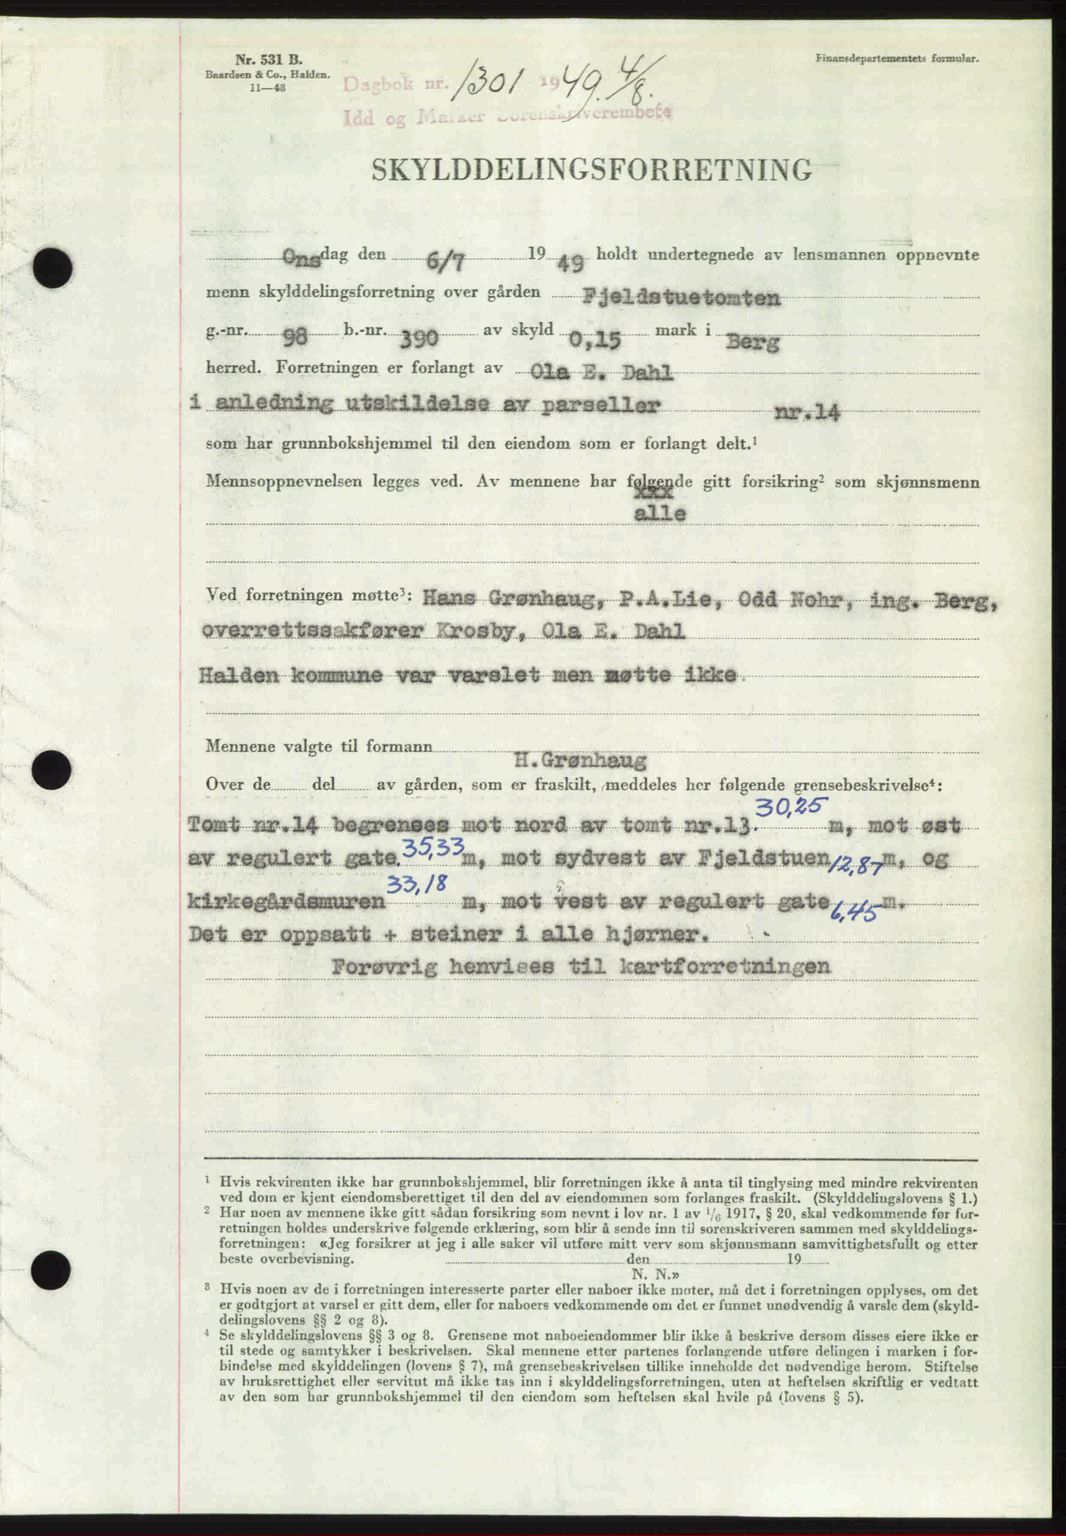 Nr. 531 B.
Baardsen & Co., Halden.
11—48
Finansdepartementets formular.
Dagbok nr. 1301 1949. 4/8.
Idd og Marker Sorenskriverembete
SKYLDDELINGSFORRETNING
Onsdag den 6/7 1949 holdt undertegnede av lensmannen oppnevnte
menn skylddelingsforretning over gården Fjeldstuetomten
g.-nr. 98 b.-nr. 390 av skyld 0,15 mark i Berg
herred. Forretningen er forlangt av Ola E. Dahl
i anledning utskildelse av parseller nr.14
som har grunnbokshjemmel til den eiendom som er forlangt delt.¹
Mennsoppnevnelsen legges ved. Av mennene har følgende gitt forsikring² som skjønnsmenn
xxx
alle
Ved forretningen møtte³: Hans Grønhaug, P.A.Lie, Odd Nohr, ing. Berg,
overrettssakfører Krosby, Ola E. Dahl
Halden kommune var varslet men møtte ikke.
Mennene valgte til formann H.Grønhaug
Over de del av gården, som er fraskilt, meddeles her følgende grensebeskrivelse⁴:
Tomt nr.14 begrenses mot nord av tomt nr.13. 30,25 m, mot øst
av regulert gate. 35,33 m, mot sydvest av Fjeldstuen 12,87 m, og
kirkegårdsmuren 33,18 m, mot vest av regulert gate 6,45 m.
Det er oppsatt + steiner i alle hjørner.
Forøvrig henvises til kartforretningen
¹ Hvis rekvirenten ikke har grunnbokshjemmel, blir forretningen ikke å anta til tinglysing med mindre rekvirenten
ved dom er kjent eiendomsberettiget til den del av eiendommen som forlanges fraskilt. (Skylddelingslovens § 1.)
² Har noen av mennene ikke gitt sådan forsikring som nevnt i lov nr. 1 av 1/6 1917, § 20, skal vedkommende før for-
retningen holdes underskrive følgende erklæring, som blir å sende inn til sorenskriveren sammen med skylddelings-
forretningen: «Jeg forsikrer at jeg i alle saker vil utføre mitt verv som skjønnsmann samvittighetsfullt og etter
beste overbevisning. den 19
N. N.»
³ Hvis noen av de i forretningen interesserte parter eller naboer ikke møter, må det i forretningen opplyses, om det
er godtgjort at varsel er gitt dem, eller for naboers vedkommende om det er funnet unødvendig å varsle dem (skyld-
delingslovens §§ 2 og 8).
⁴ Se skylddelingslovens §§ 3 og 8. Grensene mot naboeiendommer blir ikke å beskrive dersom disses eiere ikke er
til stede og samtykker i beskrivelsen. Skal mennene etter partenes forlangende utføre delingen i marken i for-
bindelse med skylddelingen (lovens § 7), må grensebeskrivelsen tillike inneholde det nødvendige herom. Stiftelse
av bruksrettighet eller servitut må ikke tas inn i skylddelingsforretningen, uten at heftelsen skriftlig er vedtatt
av den som har grunnbokshjemmel til den eiendom som heftelsen skal hvile på (lovens § 5).